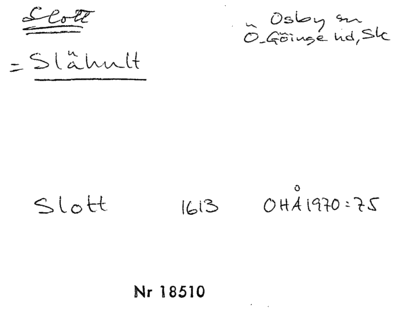 Slott
Osby sn
Ö. Göinge hd, Sk
= Slähult
Slott 1613 OHÅ 1970:75
Nr 18510